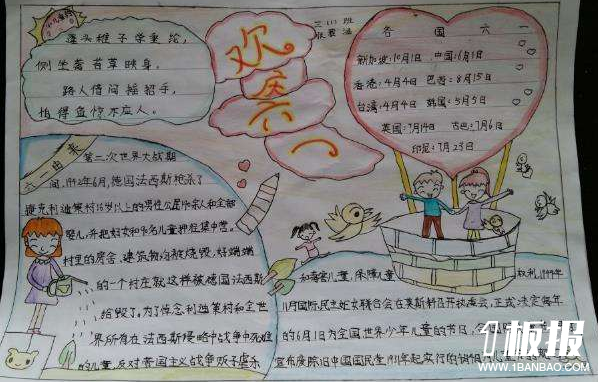 蓬头稚子学垂纶,
侧坐莓苔草映身。
路人借问遥招手,
怕得鱼惊不应人。
欢庆六一
三(1)班
各国六一
新加坡:10月1日 中国:6月1日
香港:4月4日 巴西:8月15日
台湾:4月4日 韩国:5月5日
英国:7月14日 古巴:7月6日
印尼:7月23日
六一由来
第二次世界大战期
间,1942年6月,德国法西斯枪杀了
捷克利迪策村16岁以上的男性公民140余人和全部
婴儿,并把妇女和90名儿童押往集中营。
村里的房舍、建筑物均被烧毁,好端端
的一个村庄就这样被德国法西斯
给毁了,为了悼念利迪策村和全世
界所有在法西斯侵略中战争中死难
的儿童,反对帝国主义战争贩子虐杀
和毒害儿童,保障儿童权利,1949年
11月国际民主妇女联合会在莫斯科召开执委会,正式决定每年
的6月1日为全国世界少年儿童的节日,
宣布废除旧中国国民党1931年起实行的
板报
WWW.1BANBAO.COM